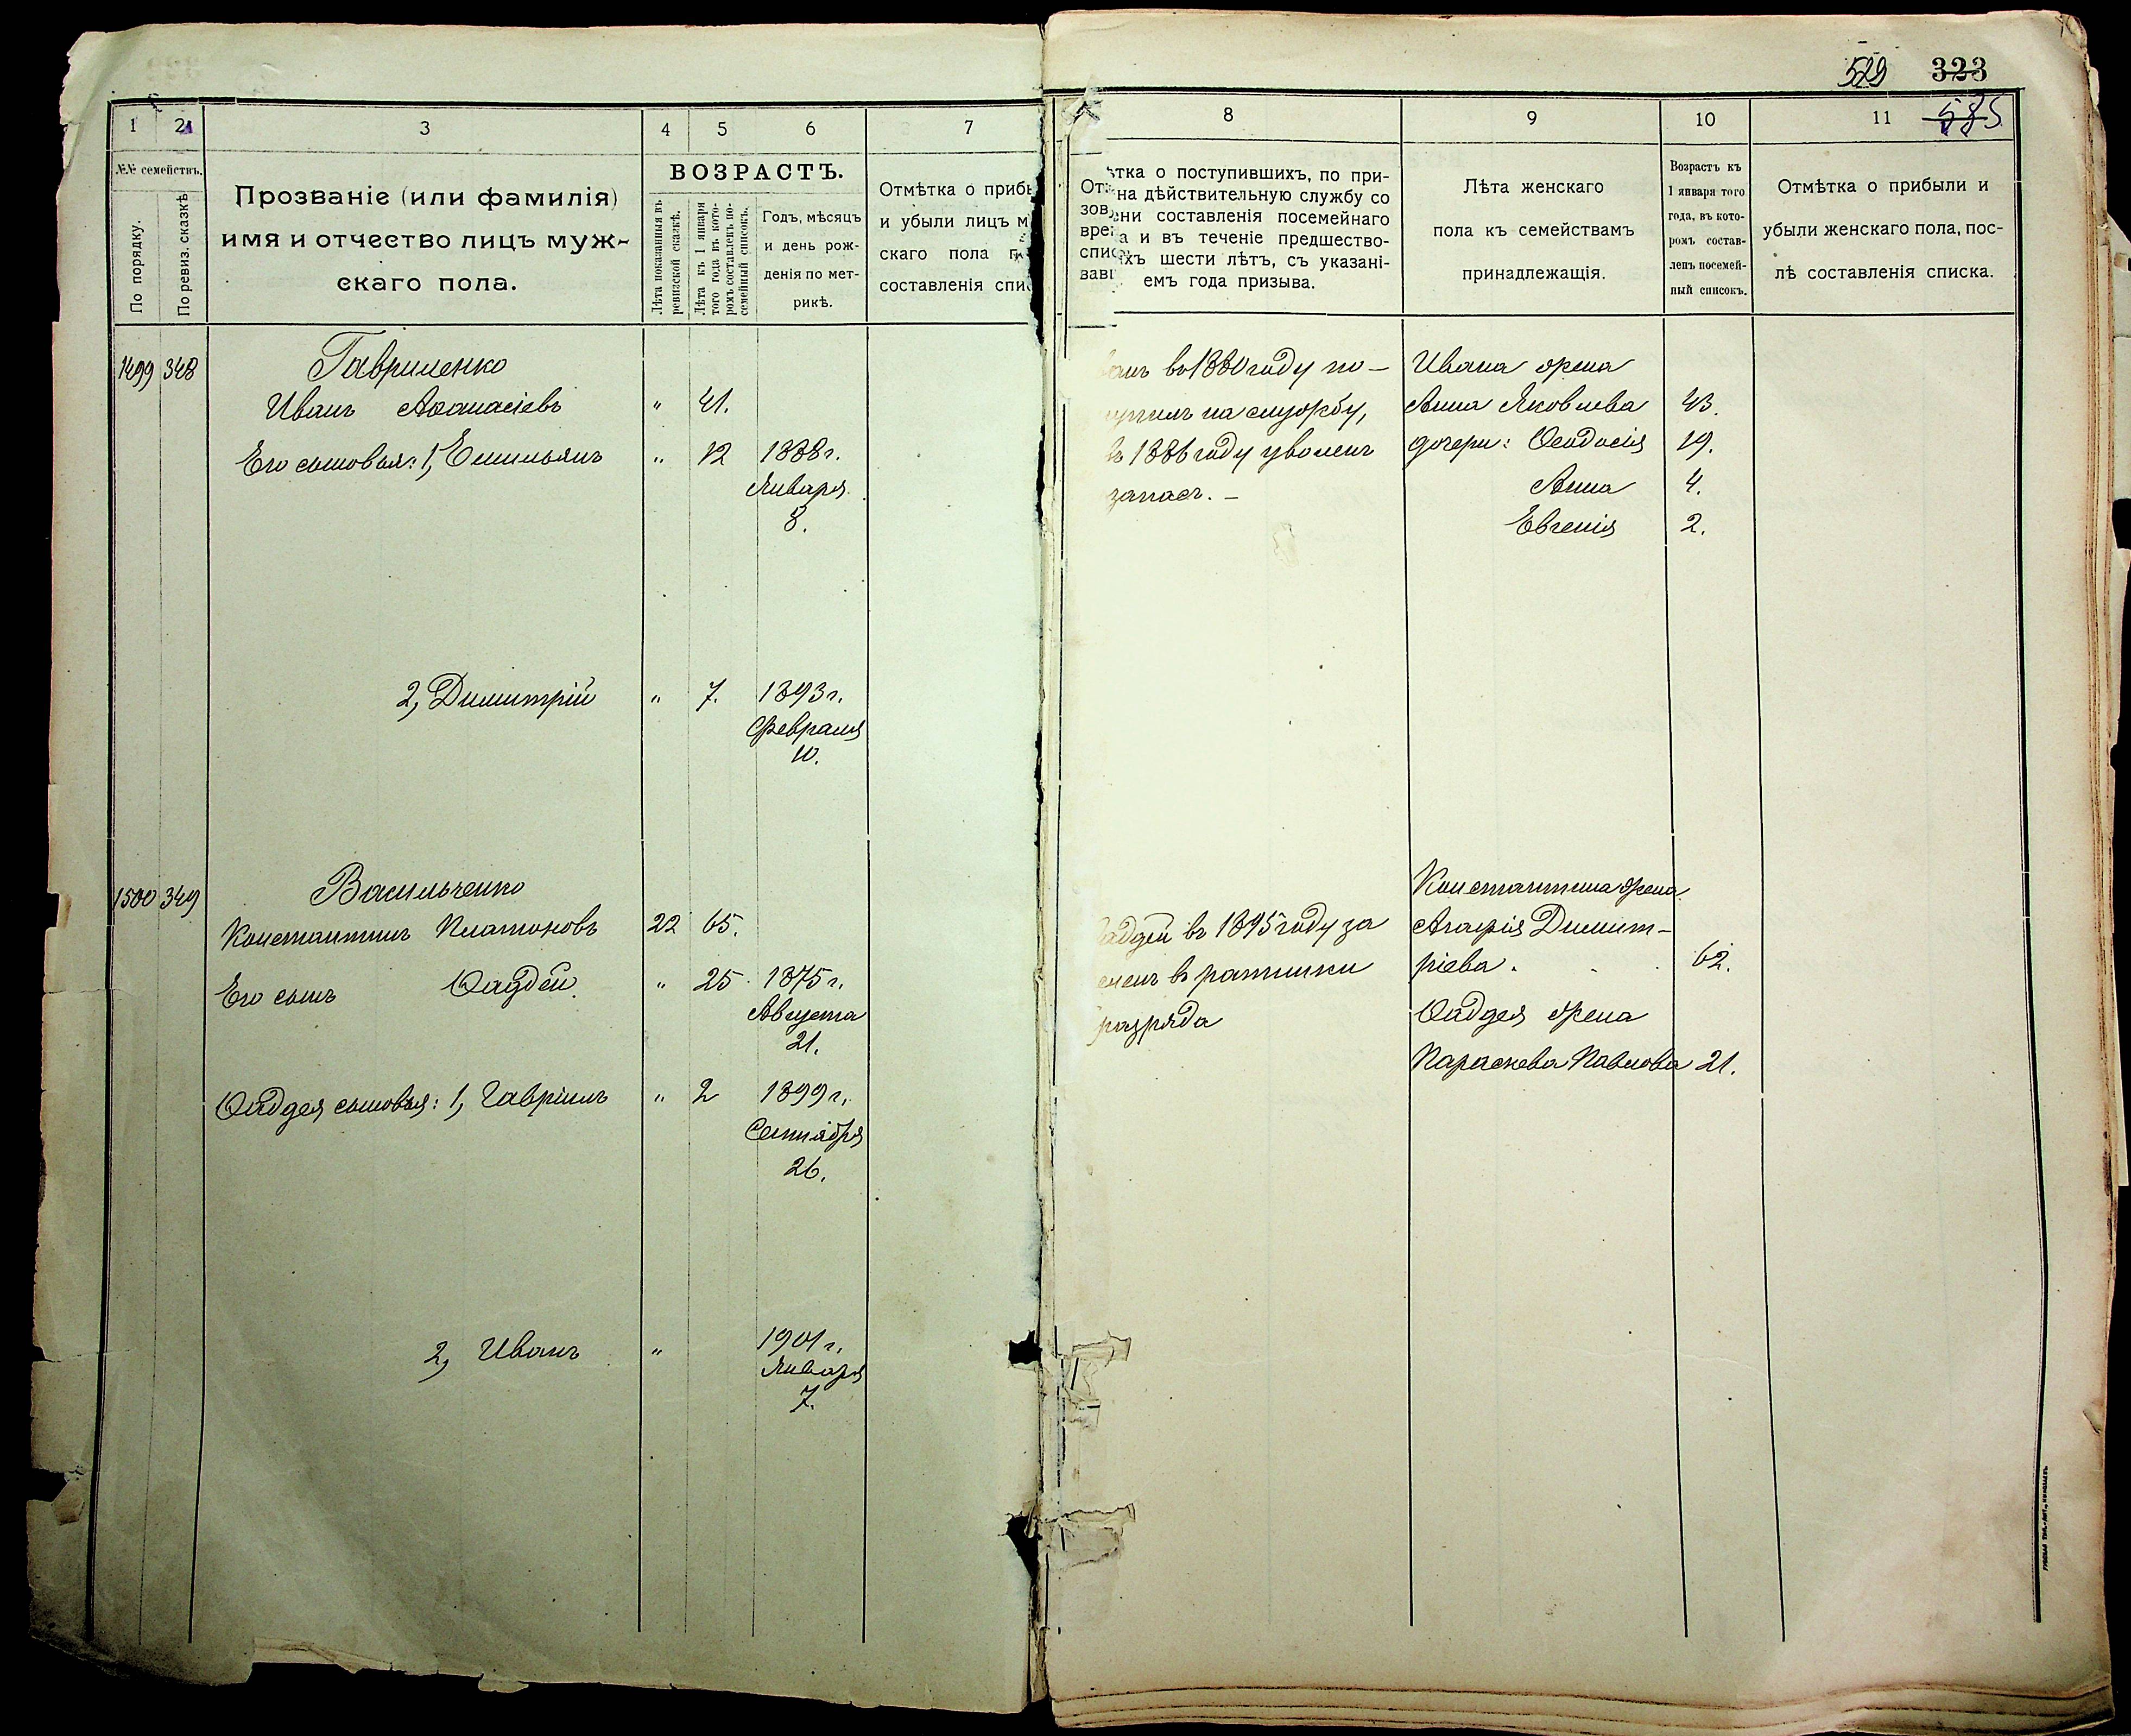 529 323
585
1 2 3 4 5 6 7
№№ семействъ.
По порядку.
По ревиз. сказкѣ
Прозваніе (или фамилія)
имя и отчество лицъ муж-
скаго пола.
ВОЗРАСТЪ.
Лѣта показанныя въ
ревизской сказкѣ.
Лѣта къ 1 января
того года въ кото-
ромъ составленъ по-
семейный списокъ.
Годъ, мѣсяцъ
и день рож-
денія по мет-
рикѣ.
Отмѣтка о прибы
и убыли лицъ м
скаго пола п
составленія спис
1499 348 Гавриленко
Иванъ Аѳанасіевъ " 41.
Его сыновья: 1, Емильянъ " 12 1888 г.
Января
8.
2, Димитрій " 7. 1893 г.
Февраля
10.
1500 349 Васильченко
Константинъ Платоновъ 22 65.
Его сынъ Ѳаддей " 25 1875 г.
Августа
21.
Ѳаддея сыновья: 1, Гавріилъ " 2 1899 г.
Сентября
26.
2, Иванъ " 1901 г.
Января
7.
8 9 10 11
ѣтка о поступившихъ, по при-
на дѣйствительную службу со
ени составленія посемейнаго
а и въ теченіе предшество-
ихъ шести лѣтъ, съ указані-
емъ года призыва.
Лѣта женскаго
пола къ семействамъ
принадлежащія.
Возрастъ къ
1 января того
года, въ кото-
ромъ состав-
ленъ посемей-
ный списокъ.
Отмѣтка о прибыли и
убыли женскаго пола, пос-
лѣ составленія списка.
ванъ въ 1880 году по- Ивана жена
упилъ на службу, Анна Яковлева 43.
въ 1886 году уволенъ дочери: Ѳеодосія 19.
запасъ. – Анна 4.
Евгенія 2.
Константина жена
аддей въ 1895 году за Агафія Димит-
сленъ въ ратники ріева. 62.
разряда Ѳаддея жена
Параскева Павлова 21.